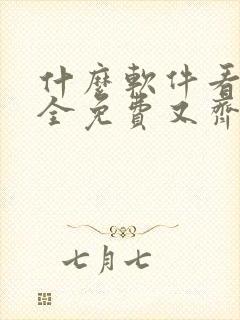 什麼軟件看
全免費又齊
七月七